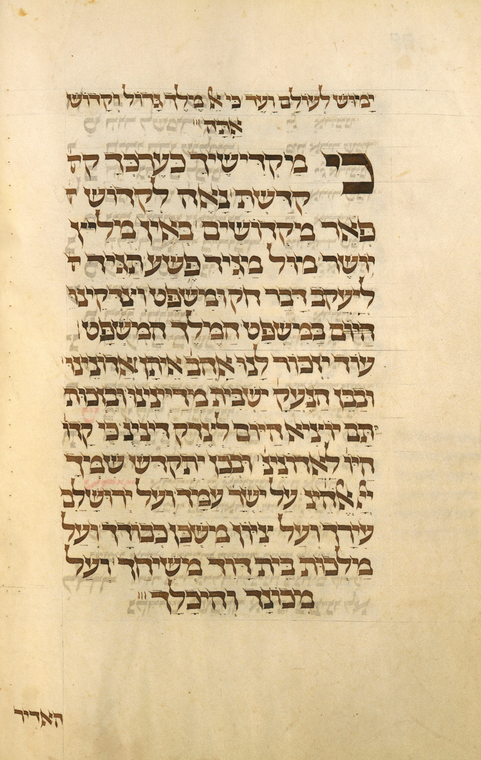 ימיש לעולם ועד כי א מלך גדול וקדוש
אתה
כי מקדישיך כערכך קד
קדשת נאה לקדוש
פאר מקדושים באין מליץ
יושר מול מגיד פשע תגיד ד
ליעקב דבר חק ומשפט וצדקינו
היום במשפט המלך המשפט
עוד יזכור לנו אהב איתן אדנינו
ובבן הנעקד ישבית מדיינינו ובזכות
תם יוציא היום לצדק דינינו כי קדו
היו לאדנינו ובכן יתקדש שמך
אלהינו על ישר עמך ועל ירושלם
עירך ועל ציון משכן כבודך ועל
מלכות בית דוד משיחך ועל
מכונך והיכלך
האדיר